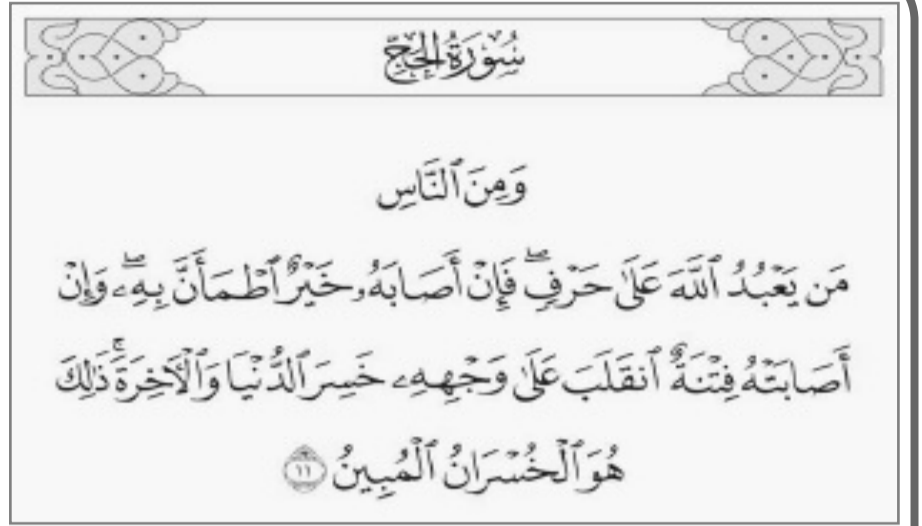 سُورَةُ الحَجِّ
وَمِنَ ٱلنَّاسِ
مَن يَعْبُدُ ٱللَّهَ عَلَىٰ حَرْفٍۖ فَإِنْ أَصَابَهُۥ خَيْرٌ ٱطْمَأَنَّ بِهِۦۖ وَإِنْ
أَصَابَتْهُ فِتْنَةٌ ٱنقَلَبَ عَلَىٰ وَجْهِهِۦ خَسِرَ ٱلدُّنْيَا وَٱلْأَخِرَةَۚ ذَٰلِكَ
هُوَ ٱلْخُسْرَانُ ٱلْمُبِينُ ١١